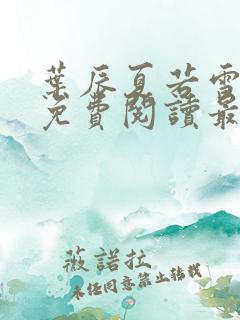 葉辰夏若雪
免費閱讀最
薇諾拉
未經同意禁止轉載